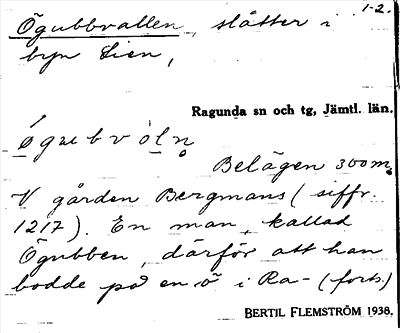 1-2.
Ögubbvallen, slåtter i
byn Lien,
Ragunda sn och tg, Jämtl. län.
ó̱gu̱bvòḷṇ
Belägen 300 m.
V gården Bergmans (siffr.
1217). En man, kallad
Ögubben, därför att han
bodde på en ö i Ra- (forts.)
BERTIL FLEMSTRÖM 1938.